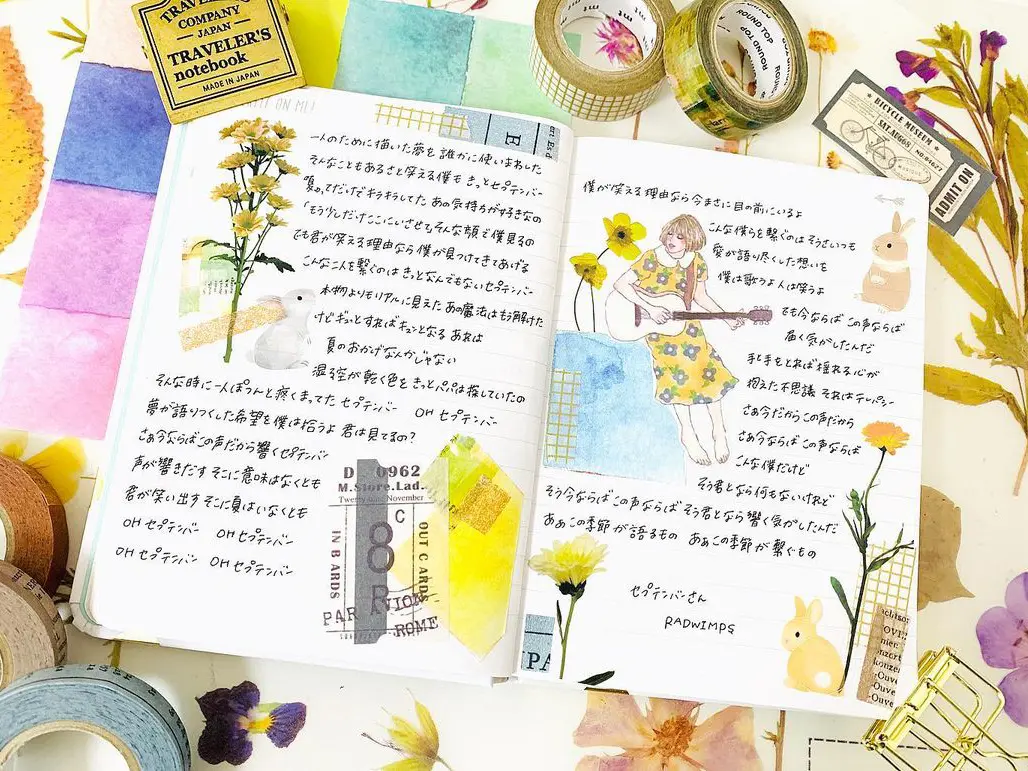 TRAVELER'S
COMPANY
JAPAN
TRAVELER'S
notebook
MADE IN JAPAN
ROUND TOP
BICYCLE MUSEUM
ADMIT ON
一人のために描いた夢を誰かに使いまわした
そんなこともあるさと笑える僕もきっとセプテンバー
夏ってだけでキラキラしてた あの気持ちが好きなの
「もう少しだけここにいさせて」そんな顔で僕見るの
でも君が笑える理由なら僕が見つけてきてあげる
こんな二人を繋ぐのはきっとなんでもないセプテンバー
本物よりもリアルに見えた あの魔法はもう解けた
けどギュッとすればキュンとなる あれは
夏のおかげなんかじゃない
湿る空が乾く色をきっとパパは探していたの
そんな時に一人ぽつんと疼くまってた セプテンバー OH セプテンバー
夢が語りつくした希望を僕は拾うよ 君は見てるの?
さぁ今ならばこの声だから響くセプテンバー
声が響きだす そこに意味はなくとも
君が笑い出す そこに夏はいなくとも
OH セプテンバー OH セプテンバー
OH セプテンバー OH セプテンバー
D 0962
M.Store.Lad.
Twenty-nine November
C
8
R
IN B ARDS
OUT C ARDS
PAR AVION
ROME
僕が笑える理由なら今まさに目の前にいるよ
こんな僕らを繋ぐのはそうさいつも
愛が語り尽くした想いを
僕は歌うよ 人は笑うよ
でも今ならば この声ならば
届く気がしたんだ
手と手をとれば 揺れる心が
抱えた不思議 それはテレパシー
さぁ今だからこの声だから
さぁ今ならば この声ならば
こんな僕だけど
そう君となら何もないけれど
そう今ならば この声ならば そう君となら響く気がしたんだ
あぁこの季節が語るもの あぁこの季節が繋ぐもの
セプテンバーさん
RADWIMPS